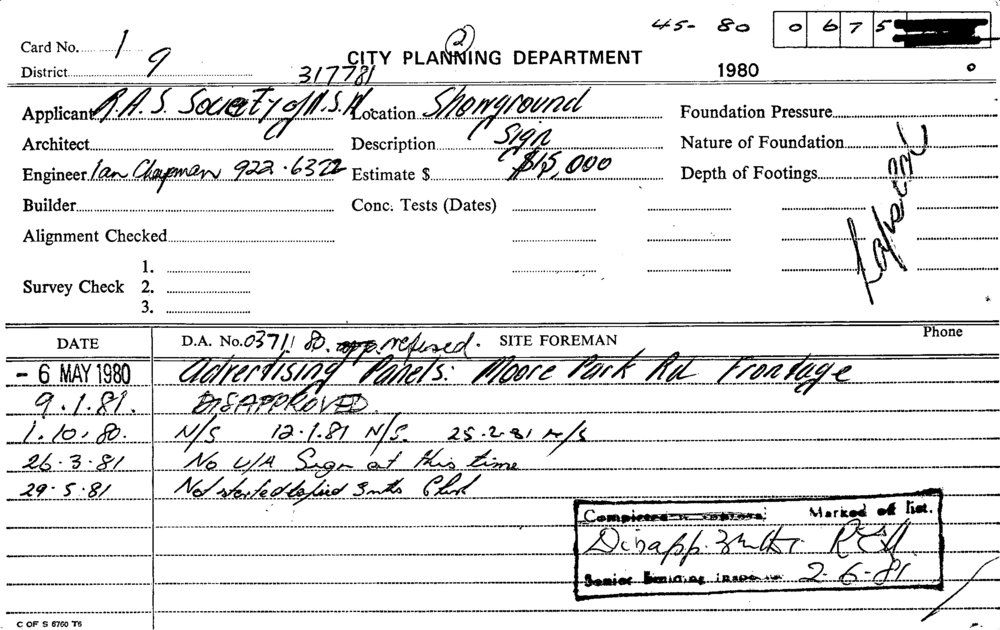 45- 80 0 6 7 5
Card No. 1
(2)
CITY PLANNING DEPARTMENT
District 9
317781
1980 0
Applicant R.A.S. Society of N.S.W. Location Showground Foundation Pressure
Architect Description Sign Nature of Foundation
Engineer Ian Chapman 922·6322 Estimate $ $15,000 Depth of Footings
Builder Conc. Tests (Dates)
Alignment Checked
1.
Survey Check 2.
3.
DATE D.A. No. 03711 80. refused. SITE FOREMAN Phone
- 6 MAY 1980 Advertising Panels: Moore Park Rd Frontage
9.1.81. DISAPPROVED.
1.10.80. N/S 12.1.81 N/S. 25.2.81 N/S
26.3.81 No U/A Sign at this time
29.5.81 Not started 3mths
Marked off list.
Disapp.
Senior Building Inspector 2-6-81
C OF S 6760 T6